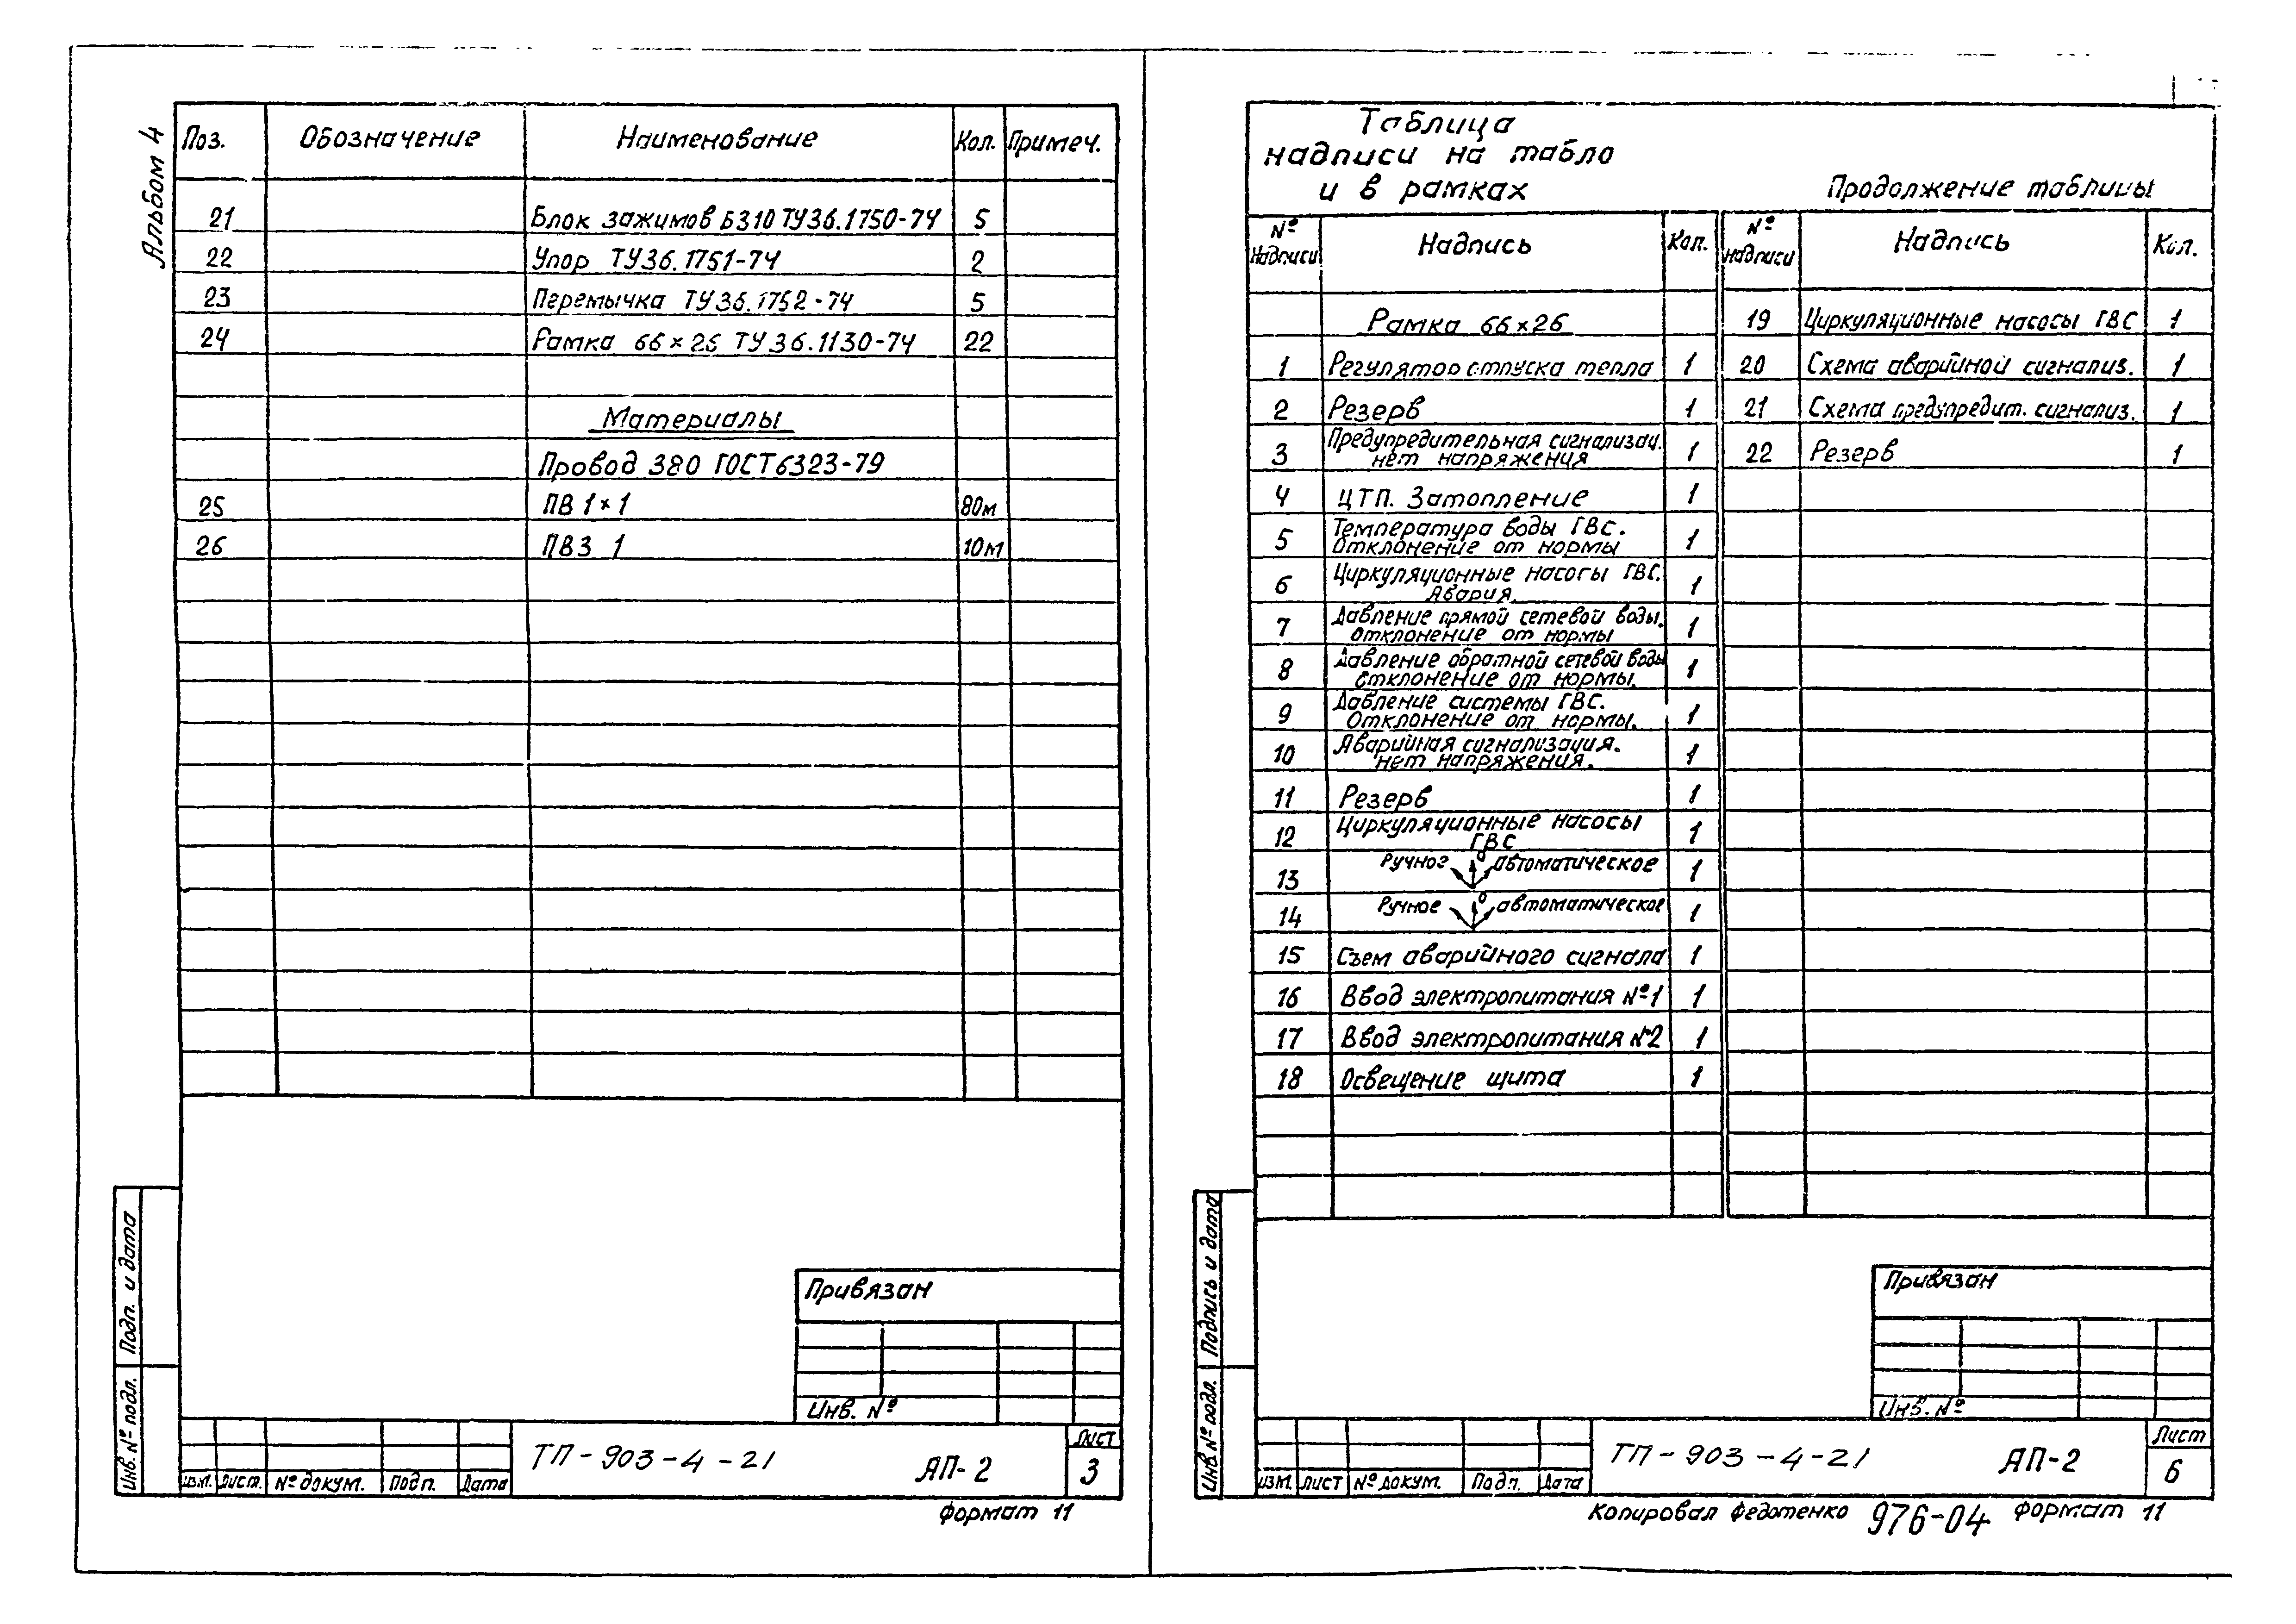 Альбом 4
Поз. Обозначение Наименование Кол. Примеч.
21 Блок зажимов Б310 ТУ36.1750-74 5
22 Упор ТУ36.1751-74 2
23 Перемычка ТУ36.1752-74 5
24 Рамка 66×26 ТУ36.1130-74 22
Материалы
Провод 380 ГОСТ6323-79
25 ПВ 1×1 80м
26 ПВ3 1 10м
Привязан
Инв. №
Подп. и дата
Инв. № подл.
Изм. Лист. № докум. Подп. Дата
ТП-903-4-21 АП-2
Лист
3
Формат 11
Таблица
надписи на табло
и в рамках
Продолжение таблицы
№ надписи Надпись Кол. № надписи Надпись Кол.
Рамка 66×26 19 Циркуляционные насосы ГВС 1
1 Регулятор отпуска тепла 1 20 Схема аварийной сигнализ. 1
2 Резерв 1 21 Схема предупредит. сигнализ. 1
3 Предупредительная сигнализац. 1 22 Резерв 1
нет напряжения
4 ЦТП. Затопление 1
5 Температура воды ГВС. 1
Отклонение от нормы
6 Циркуляционные насосы ГВС. 1
Авария.
7 Давление прямой сетевой воды. 1
отклонение от нормы
8 Давление обратной сетевой воды 1
отклонение от нормы.
9 Давление системы ГВС. 1
Отклонение от нормы.
10 Аварийная сигнализация. 1
нет напряжения.
11 Резерв 1
12 Циркуляционные насосы 1
ГВС
13 Ручное 0 автоматическое 1
14 Ручное 0 автоматическое 1
15 Съем аварийного сигнала 1
16 Ввод электропитания №1 1
17 Ввод электропитания №2 1
18 Освещение щита 1
Привязан
Инв. №
Подпись и дата
Инв. № подл.
Изм. Лист № докум. Подп. Дата
ТП-903-4-21 АП-2
Лист
6
Копировал Федотенко 976-04 Формат 11